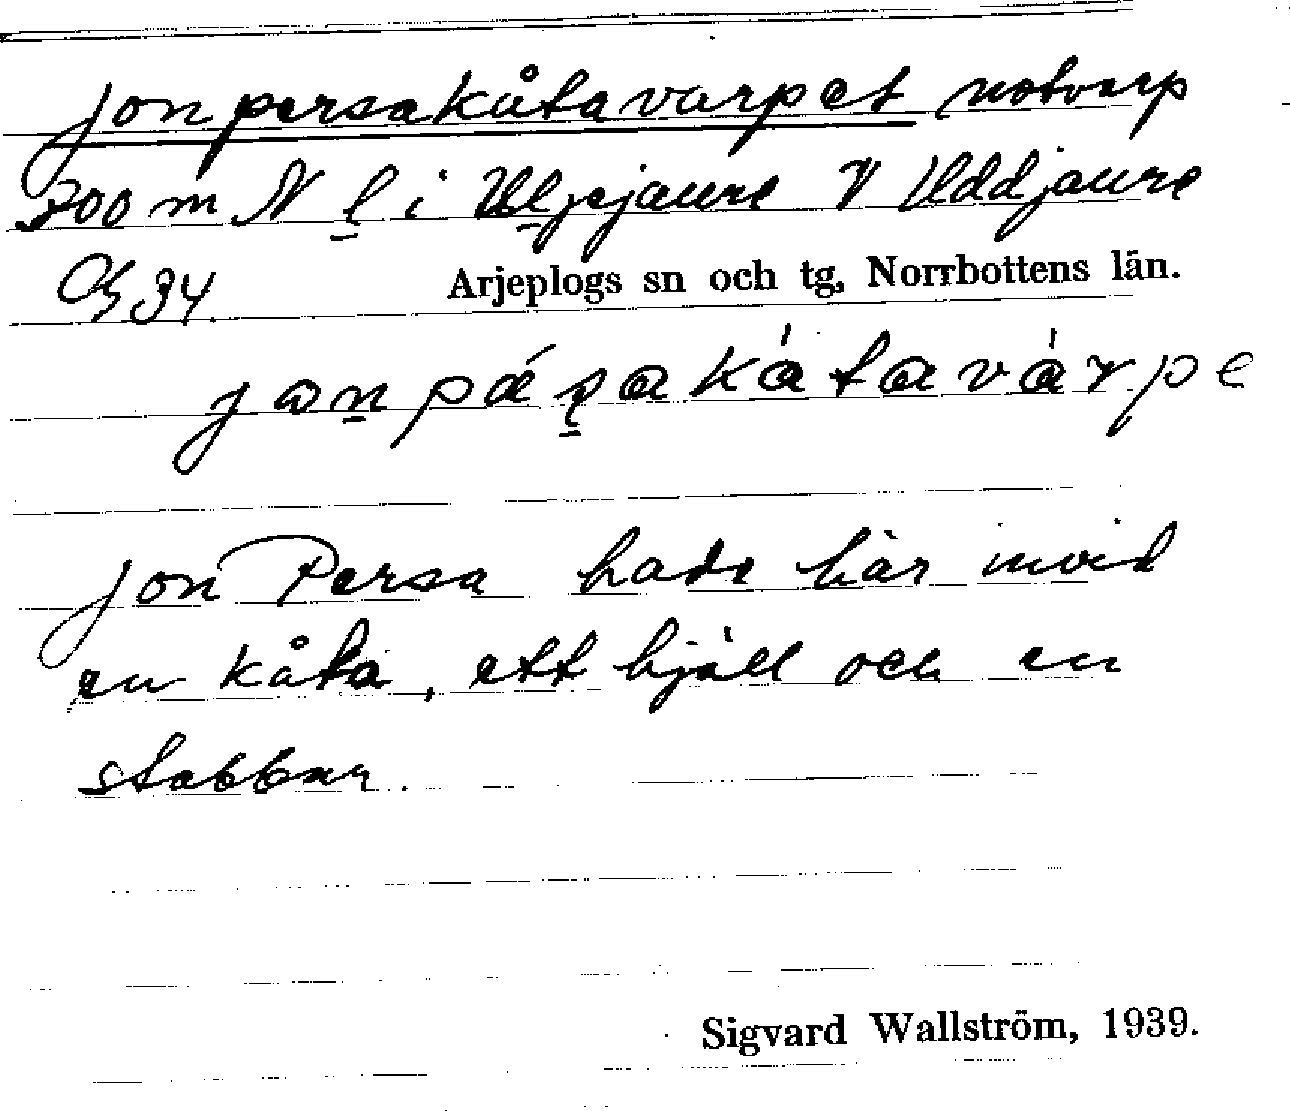 Jonpersakåtavarpet notvarp
300 m N l i Uljejaure V Uddjaure
34.
Arjeplogs sn och tg, Norrbottens län.
Jon Persa hade här invid
en kåta, ett hjäll och en
stabbur.
Sigvard Wallström, 1939.